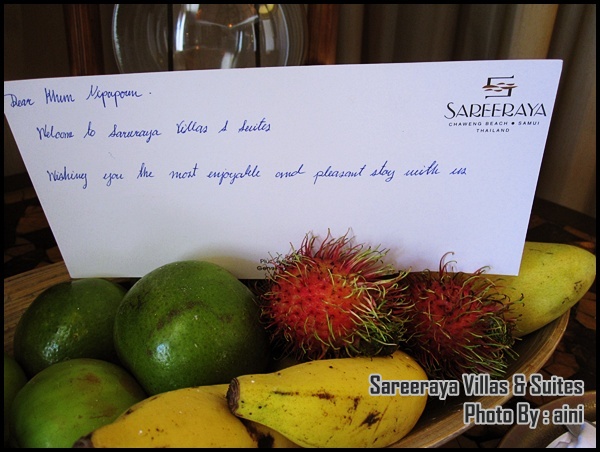 SAREERAYA
CHAWENG BEACH ● SAMUI
THAILAND
Dear Khun Nipaporn.
Welcome to Sareeraya Villas & Suites
Wishing you the most enjoyable and pleasant stay with us
Sareeraya Villas & Suites
Photo By : aini